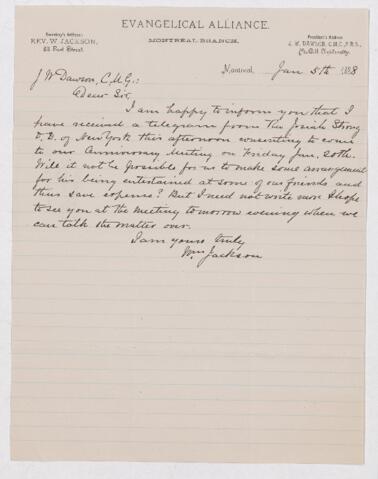 EVANGELICAL ALLIANCE.
MONTREAL BRANCH.
Secretary's Address:
REV. W. JACKSON,
Fort Street.
President's Address
J. W. DAWSON, C.M.G., F.R.S.,
McGill University.
Montreal, Jan 5th 1888
J W Dawson, C.M.G.:
Dear Sir,
I am happy to inform you that I
have received a telegram from The Josiah Strong
D.D. of New York this afternoon consenting to come
to our Anniversary Meeting on Friday Jan. 20th.
Will it not be possible for us to make some arrangement
for his being entertained at some of our friends and
thus save expense? But I need not write more I hope
to see you at the meeting tomorrow evening when we
can talk the matter over.
I am yours truly
Wm Jackson